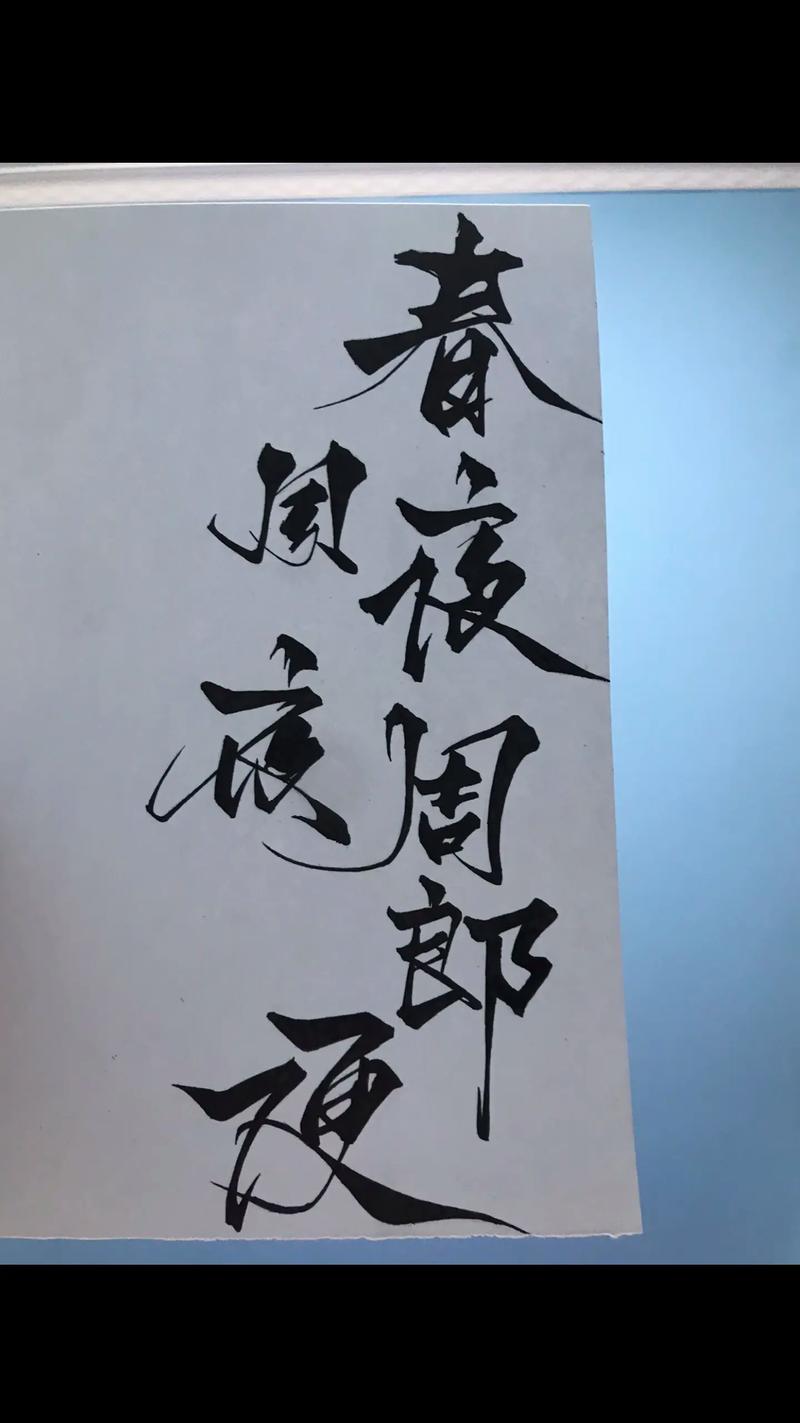 春夜周郎
周夜硬